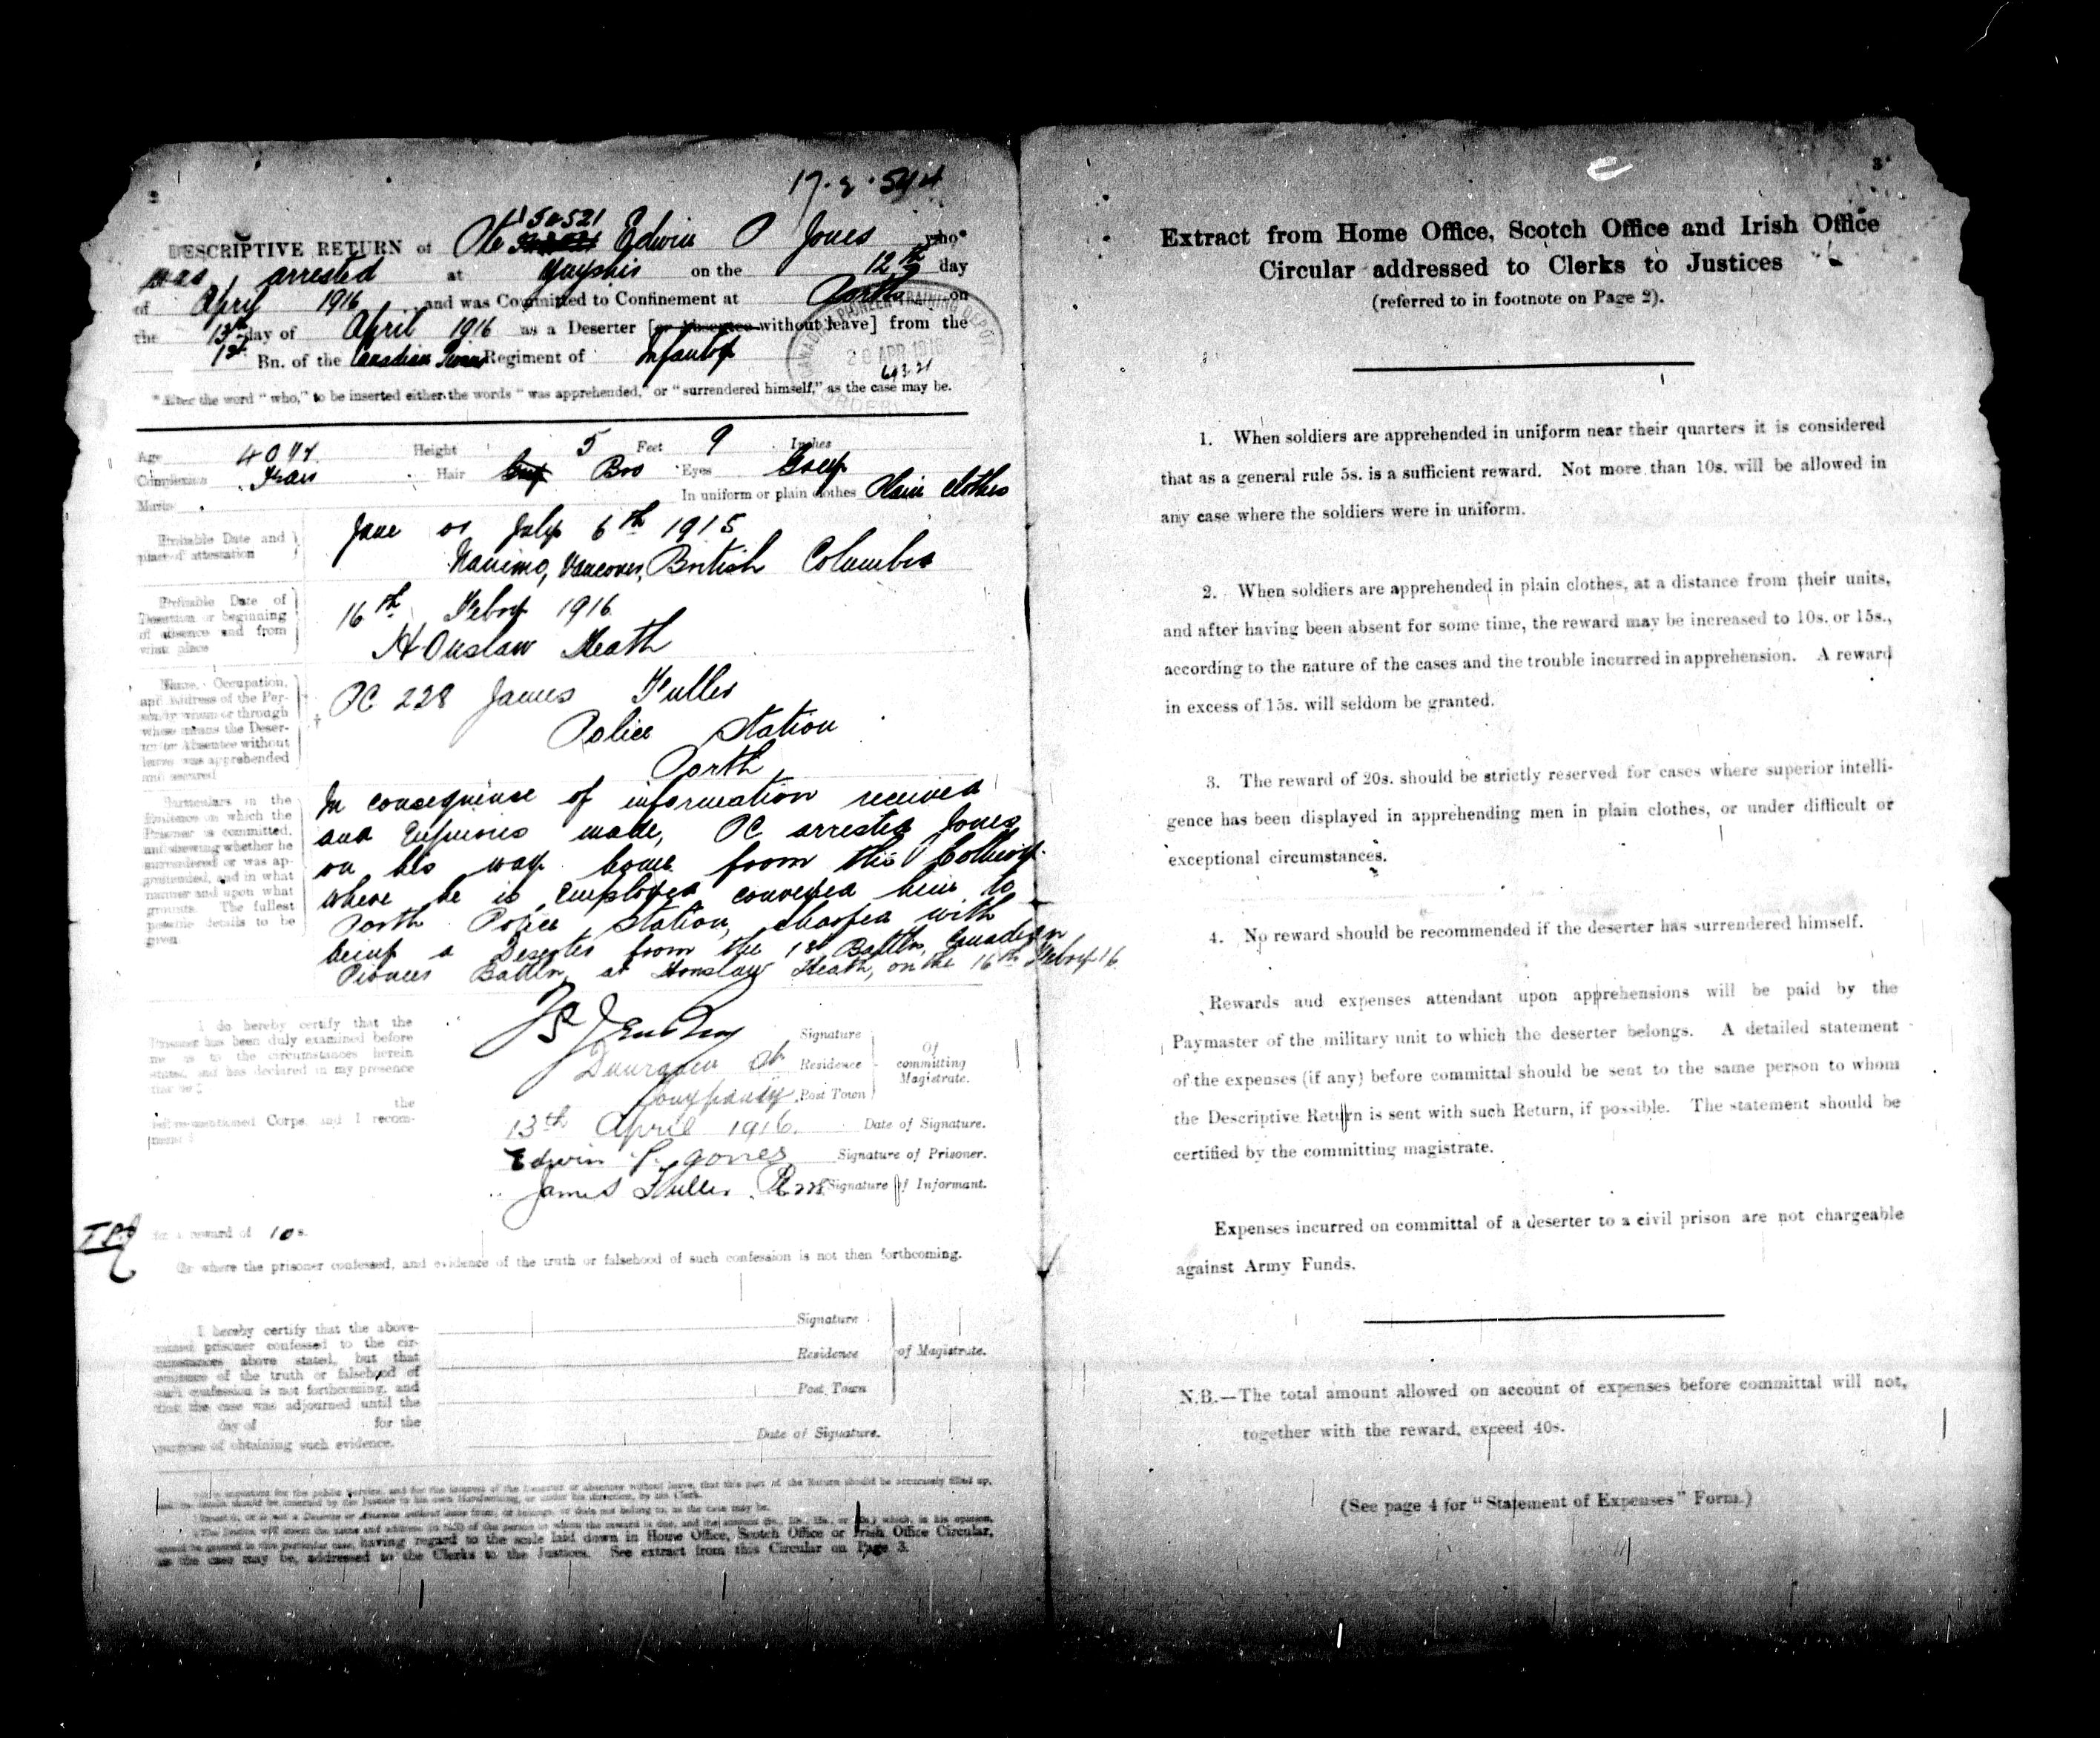 2
17·2·544
150521
DESCRIPTIVE RETURN of Pte Edwin P Jones who*
was arrested at Ynyshir on the 12th day
of April 1916 and was Committed to Confinement at Porth on
the 13th day of April 1916 as a Deserter [or Absentee without leave] from the
1st Bn. of the Canadian Pioneer Regiment of Infantry
CANADIAN PIONEER TRAINING DEPOT
20 APR 1916
* After the word "who," to be inserted either the words "was apprehended," or "surrendered himself," as the case may be.
Age 40 Height 5 Feet 9 Inches
Complexion Fair Hair Bro Eyes Grey
Marks In uniform or plain clothes Plain clothes
Probable Date and place of attestation
June or July 6th 1915
Nanimo, Vancover, British Columbia
Probable Date of Desertion or beginning of absence and from what place
16th Febry 1916
Honslaw Heath
Name, Occupation, and Address of the Person by whom or through whose means the Deserter or Absentee without leave was apprehended and secured
PC 228 James Fuller
Police Station
Porth
Particulars in the Evidence on which the Prisoner is committed, and shewing whether he surrendered or was apprehended, and in what manner and upon what grounds. The fullest possible details to be given
In consequence of information received
and Enquiries made, PC arrested Jones
on his way home from the Colliery
where he is employed conveyed him to
Porth Police Station, charged with
being a Deserter from the 1st Battln, Canadian
Pioneer Battln, at Honslaw Heath, on the 16th Febry 16
I do hereby certify that the
Prisoner has been duly examined before
me as to the circumstances herein
stated, and has declared in my presence
that he
the
before-mentioned Corps, and I recom-
mend
Signature
Residence
Post Town
Of committing Magistrate.
13th April 1916. Date of Signature.
Edwin P. Jones Signature of Prisoner.
James Fuller Pc 228 Signature of Informant.
for a reward of 10 s.
Or where the prisoner confessed, and evidence of the truth or falsehood of such confession is not then forthcoming.
I hereby certify that the above-
named prisoner confessed to the cir-
cumstances above stated, but that
evidence of the truth or falsehood of
such confession is not forthcoming, and
that the case was adjourned until the
day of for the
purpose of obtaining such evidence.
Signature
Residence
Post Town
of Magistrate.
Date of Signature.
having regard to the scale laid down in Home Office, Scotch Office or Irish Office Circular,
as the case may be, addressed to the Clerks to the Justices. See extract from this Circular on Page 3.
3
Extract from Home Office, Scotch Office and Irish Office
Circular addressed to Clerks to Justices
(referred to in footnote on Page 2).
1. When soldiers are apprehended in uniform near their quarters it is considered
that as a general rule 5s. is a sufficient reward. Not more than 10s. will be allowed in
any case where the soldiers were in uniform.
2. When soldiers are apprehended in plain clothes, at a distance from their units,
and after having been absent for some time, the reward may be increased to 10s. or 15s.,
according to the nature of the cases and the trouble incurred in apprehension. A reward
in excess of 15s. will seldom be granted.
3. The reward of 20s. should be strictly reserved for cases where superior intelli-
gence has been displayed in apprehending men in plain clothes, or under difficult or
exceptional circumstances.
4. No reward should be recommended if the deserter has surrendered himself.
Rewards and expenses attendant upon apprehensions will be paid by the
Paymaster of the military unit to which the deserter belongs. A detailed statement
of the expenses (if any) before committal should be sent to the same person to whom
the Descriptive Return is sent with such Return, if possible. The statement should be
certified by the committing magistrate.
Expenses incurred on committal of a deserter to a civil prison are not chargeable
against Army Funds.
N.B.—The total amount allowed on account of expenses before committal will not,
together with the reward, exceed 40s.
(See page 4 for "Statement of Expenses" Form.)